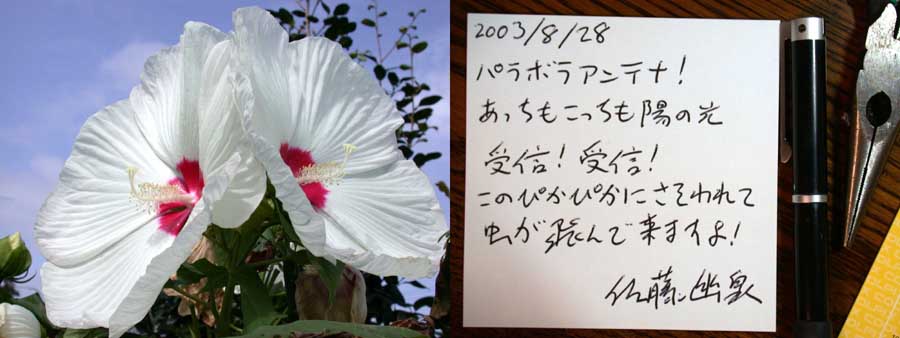 2003/8/28
パラボラアンテナ!
あっちもこっちも陽の光
受信!受信!
このぴかぴかにさそわれて
虫が飛んで来ますよ!
佐藤